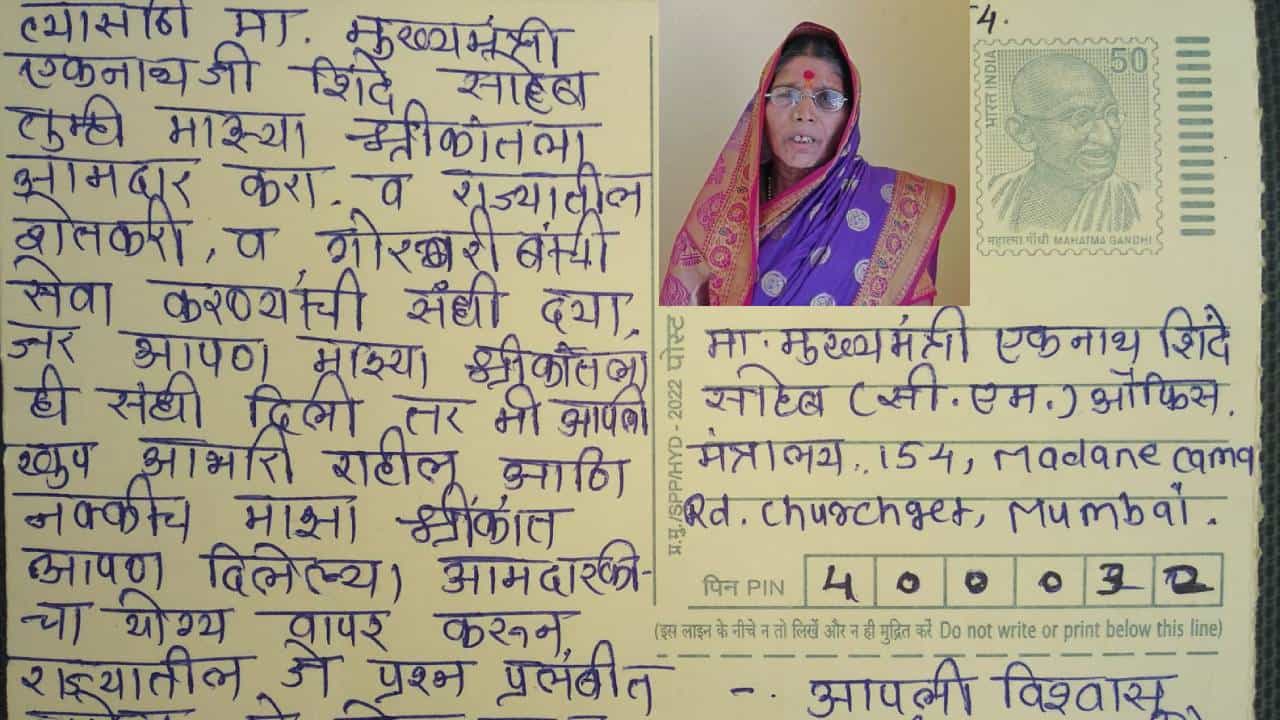 त्यासाठी मा. मुख्यमंत्री
एकनाथजी शिंदे साहेब
तुम्ही माझ्या श्रीकांतला
आमदार करा. व राज्यातील
शेतकरी, व गोरखरीबांची
सेवा करण्यांची संधी दया,
जर आपण माझ्या श्रीकांतला
ही संधी दिली तर मी आपली
खुप आभारी राहील आणि
नक्कीच माझा श्रीकांत
आपण दिलेल्या आमदारकी-
चा योग्य वापर करून,
राज्यातील जे प्रश्न प्रलंबीत
4.
भारत INDIA
50
महात्मा गाँधी MAHATMA GANDHI
प्र.मु./SPP/HYD - 2022 पोस्ट
मा. मुख्यमंत्री एकनाथ शिंदे
साहेब (सी. एम.) ऑफिस.
मंत्रालय., 154, Madane cama
Rd. Churchget, Mumbai.
पिन PIN 4 0 0 0 3 2
(इस लाइन के नीचे न तो लिखें और न ही मुद्रित करें Do not write or print below this line)
-. आपली विश्वासू